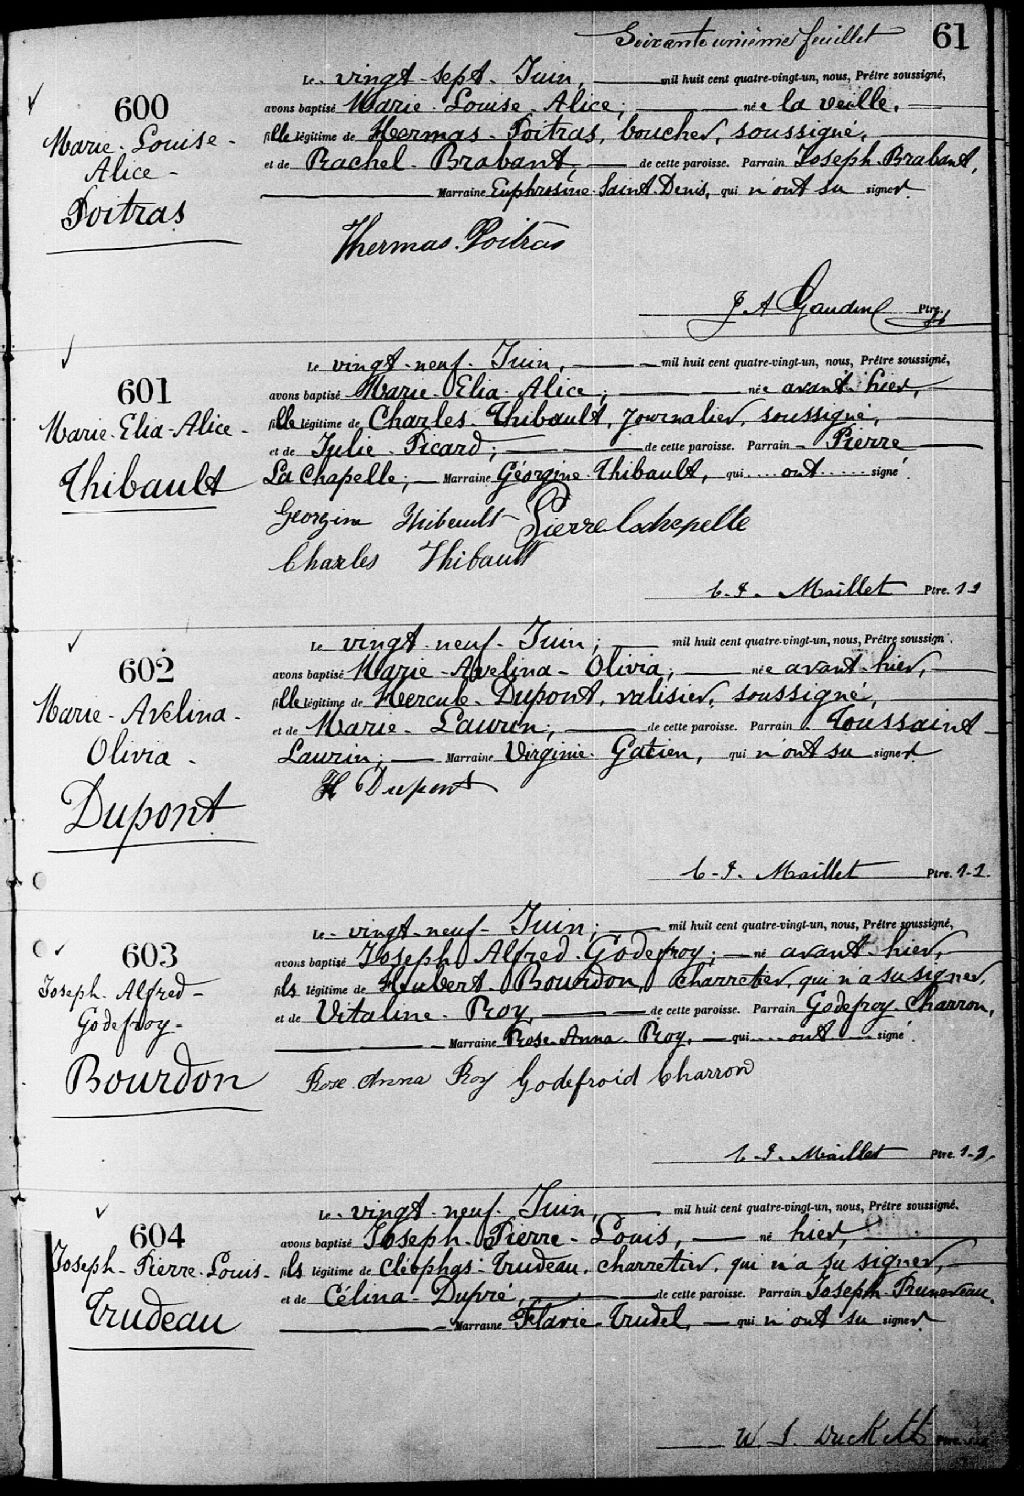 Soixante unième feuillet 61
600
Marie-Louise-
Alice-
Poitras
Le vingt-sept-Juin, mil huit cent quatre-vingt-un, nous, Prêtre soussigné,
avons baptisé Marie-Louise-Alice; née la veille,
fille légitime de Hermas-Poitras, boucher, soussigné,
et de Rachel-Brabant, de cette paroisse. Parrain Joseph-Brabant,
Marraine Euphrosine-Saint-Denis, qui n'ont su signer.
Thermas Poitras
J. A Gaudin Ptre.
601
Marie-Elia-Alice-
Thibault
Le vingt-neuf-Juin, mil huit cent quatre-vingt-un, nous, Prêtre soussigné,
avons baptisé Marie-Elia-Alice; née avant-hier,
fille légitime de Charles-Thibault, journalier, soussigné,
et de Julie-Picard; de cette paroisse. Parrain Pierre
La Chapelle; Marraine Géorgine-Thibault, qui .... ont ..... signé.
Georgina Thibault Pierre Lachapelle
Charles Thibault
Maillet Ptre.
602
Marie-Avelina-
Olivia-
Dupont
Le vingt-neuf-Juin; mil huit cent quatre-vingt-un, nous, Prêtre soussign.
avons baptisé Marie-Avelina-Olivia; née avant-hier,
fille légitime de Hercule-Dupont, valisier, soussigné,
et de Marie-Laurin; de cette paroisse. Parrain Toussaint-
Laurin; Marraine Virginie-Gatien, qui n'ont su signer.
H Dupont
Maillet Ptre.
603
Joseph-Alfred-
Godefroy-
Bourdon
Le vingt-neuf-Juin; mil huit cent quatre-vingt-un, nous, Prêtre soussigné,
avons baptisé Joseph Alfred-Godefroy; né avant-hier,
fils légitime de Hubert Bourdon, charretier, qui n'a su signer,
et de Vitaline-Roy, de cette paroisse. Parrain Godefroy-Charron,
Marraine Rose-Anna-Roy, qui .... ont .... signé.
Rose Anna Roy Godefroid Charron
Maillet Ptre.
604
Joseph-Pierre-Louis-
Trudeau
Le vingt-neuf-Juin, mil huit cent quatre-vingt-un, nous, Prêtre soussigné.
avons baptisé Joseph-Pierre-Louis, né hier,
fils légitime de Cléophas-Trudeau, charretier, qui n'a su signer,
et de Célina-Dupré, de cette paroisse. Parrain Joseph-Pruneveau,
Marraine Flavie-Trudel, qui n'ont su signer
W. J. Duckett